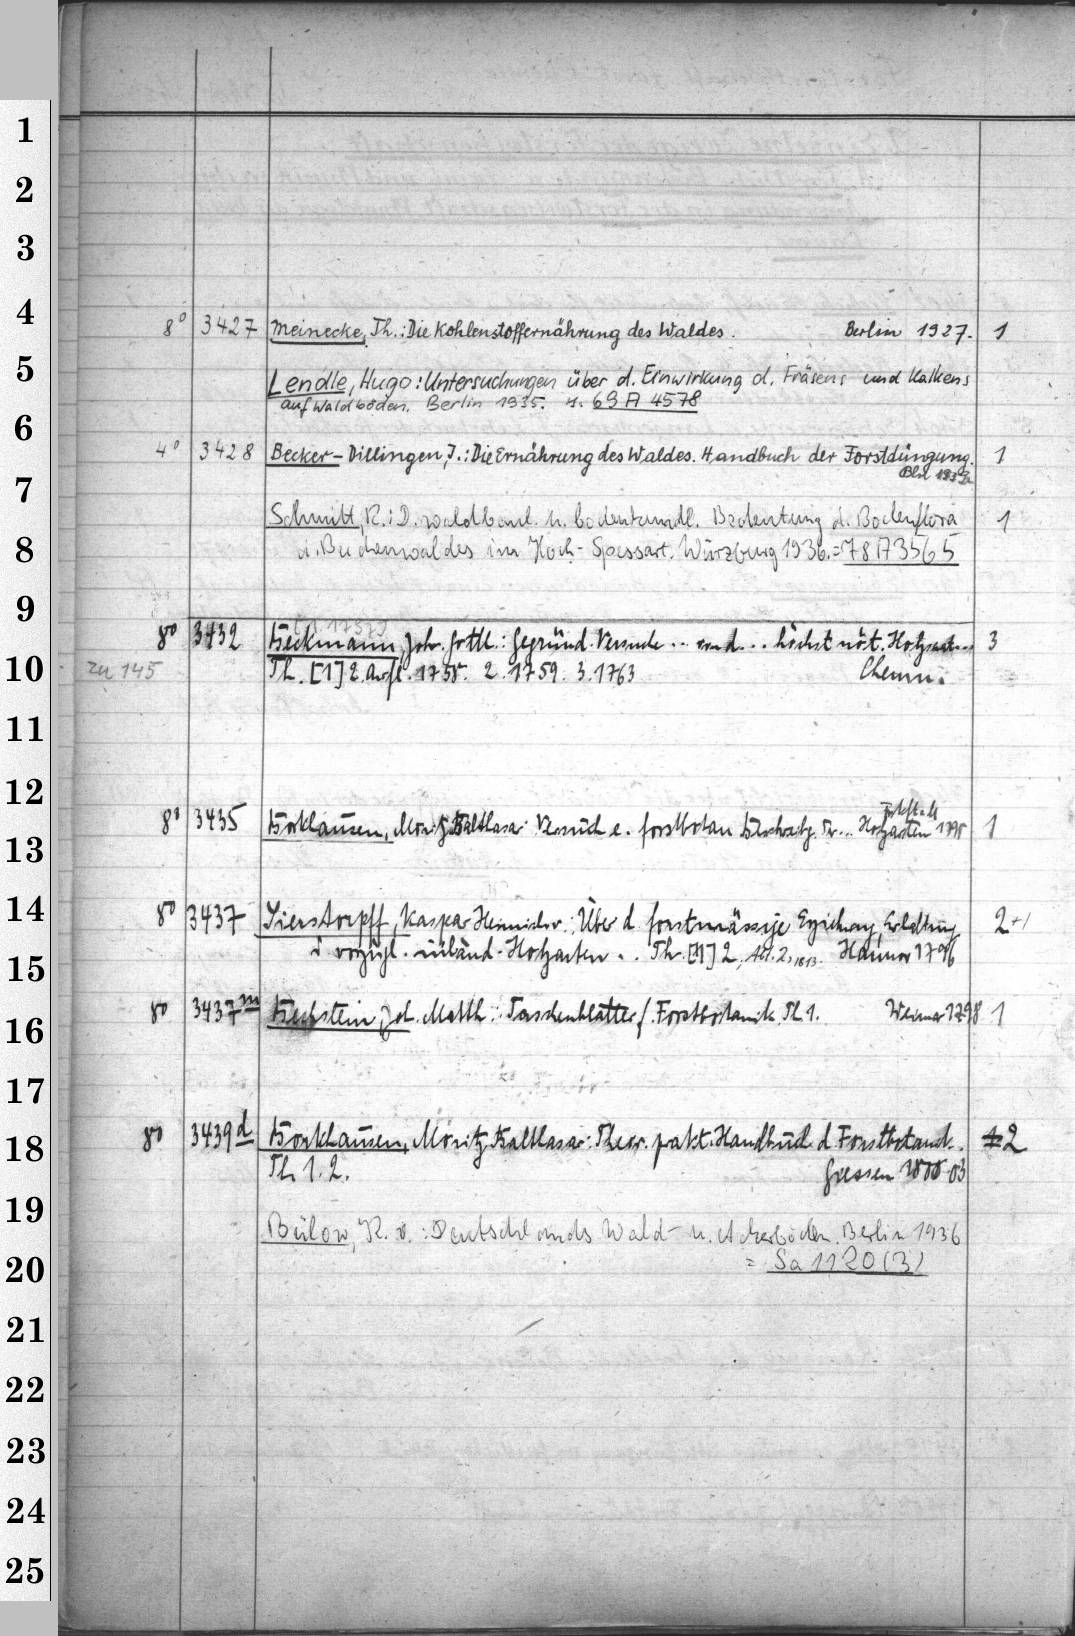 1
2
3
4
8° 3427 Meinecke, Th.: Die Kohlenstoffernährung des Waldes. Berlin 1927. 1
5
Lendle, Hugo: Untersuchungen über d. Einwirkung d. Fräsens und Kalkens
auf Waldböden. Berlin 1935. s. 69 A 4578
6
4° 3428 Becker-Dillingen, J.: Die Ernährung des Waldes. Handbuch der Forstdüngung. 1
Bln 193
7
Schmitt, R.: D. waldbaul. u. bodenkundl. Bedeutung d. Bodenflora 1
8
d. Buchenwaldes im Hoch-Spessart. Würzburg 1936. = 78 A 3565
9
8° 3432 Beckmann, Joh. Gottl.: Gegründ. Versuche ... von d... höchst nöt. Holzsaat... 3
10
zu 145 Th. [1] 2. Aufl. 1758. 2. 1759. 3. 1763 Chemn.
11
12
8° 3435 Borkhausen, Moritz Balthasar: Versuch e. forstbotan Beschreibg. Holzarten 1790 1
13
14
8° 3437 Sierstorpff, Kaspar Heinrich v.: Über d. forstmässige Erziehung, Erhaltung 2+1
15
vorzügl. inländ. Holzarten .. Th. [1] 2, Abt. 2, 1813. Hannov 1796
16
8° 3437m Bechstein, Joh. Matth.: Taschenblätter f. Forstbotanik. Th 1. Weimar 1798 1
17
18
8° 3439d Borkhausen, Moritz Balthasar: Theor. prakt. Handbuch d Forstbotanik. 2
Th. 1. 2. Giessen 1800-03
19
Bülow, K. v.: Deutschlands Wald- u. Ackerböden. Berlin 1936
20
= Sa 1120 (3)
21
22
23
24
25